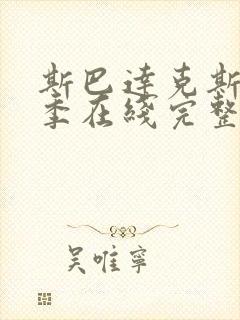 斯巴達克斯
季在綫完整
吳唯寧